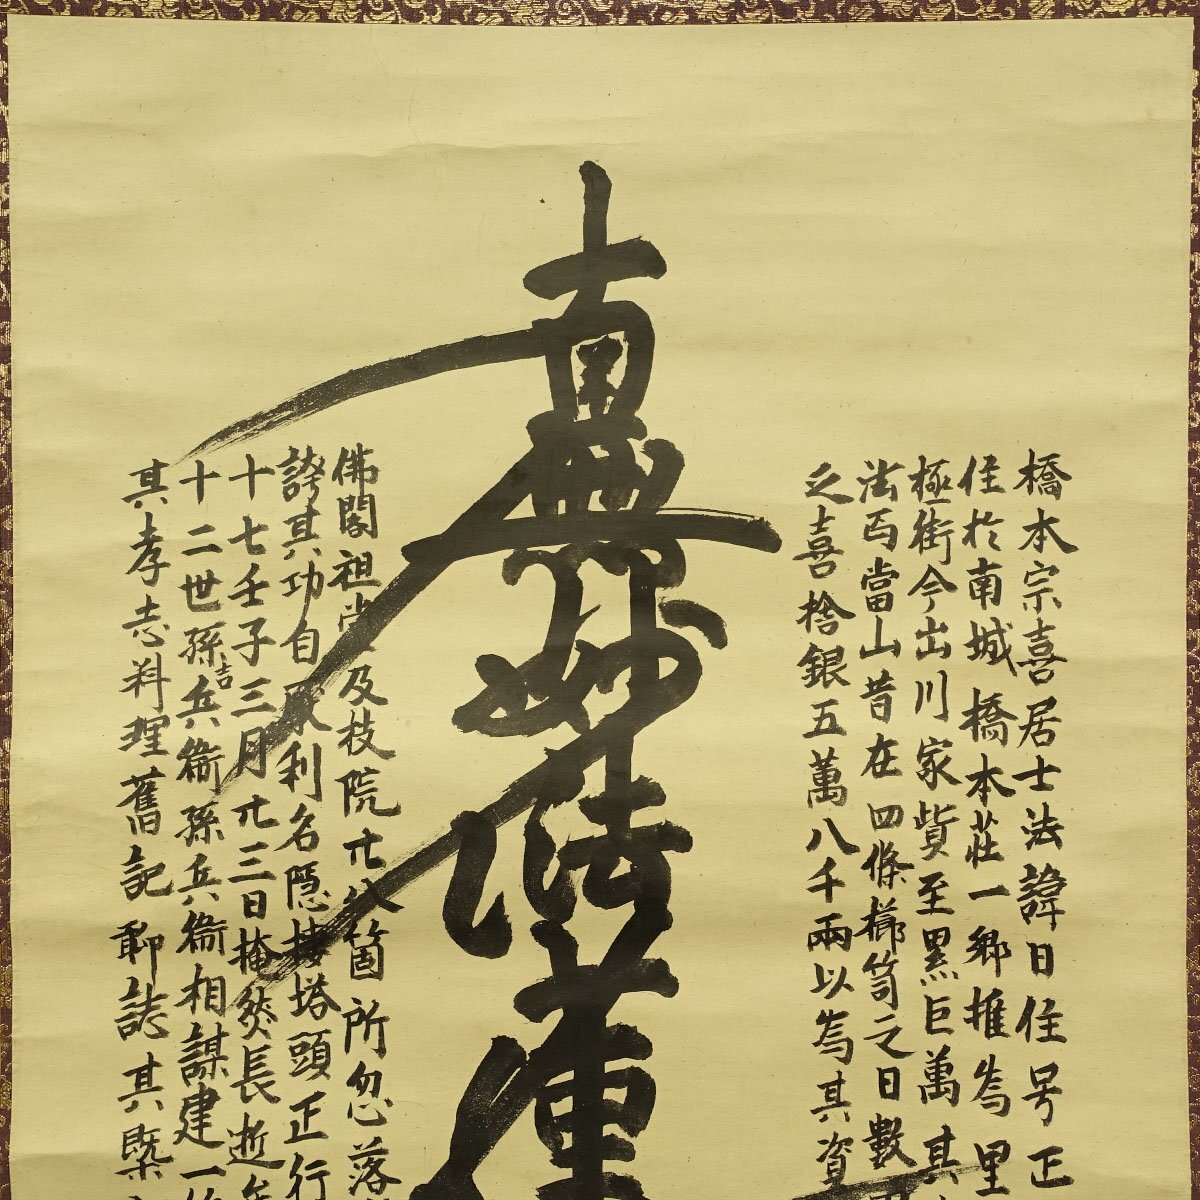 橋本宗喜居士法諱日住号正
住於南城橋本荘一郷推為里
極街今出川家貲至累巨萬其
法丐當山昔在四條櫛笥之日數
之喜捨銀五萬八千兩以為其資
南無妙法蓮
佛閣祖堂及枝院廿八箇所忽落
誇其功自利名隠棲塔頭正行
十七壬子三月廿三日掩然長逝
十二世孫吉兵衞孫兵衞相謀建一
其孝志料理舊記聊誌其槩